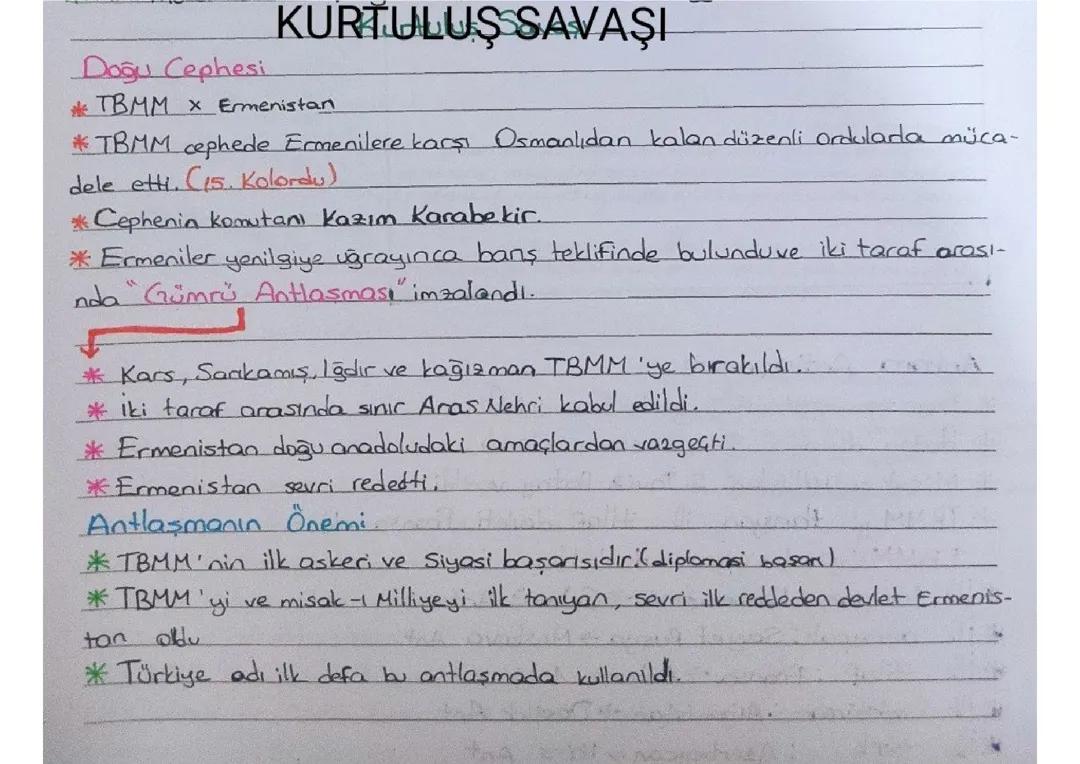 KURTULUŞ SAVAŞI
Doğu Cephesi
* TBMM x Ermenistan
* TBMM cephede Ermenilere karşı Osmanlıdan kalan düzenli ordularla müca-
dele etti. (15. Kolordu)
* Cephenin komutanı Kazım Karabekir.
* Ermeniler yenilgiye uğrayınca barış teklifinde bulundu ve iki taraf arası-
nda "Gümrü Antlaşması" imzalandı.
* Kars, Sarıkamış, Iğdır ve kağızman TBMM'ye bırakıldı.
* iki taraf arasında sınır Aras Nehri kabul edildi.
* Ermenistan doğu anadoludaki amaçlardan vazgeçti.
* Ermenistan sevri redetti.
Antlaşmanın Önemi
* TBMM'nin ilk askeri ve Siyasi başarısıdır. (diplomasi başarı)
* TBMM'yi ve misak-ı Milliyeyi ilk tanıyan, sevri ilk reddeden devlet Ermenis-
tan oldu
* Türkiye adı ilk defa bu antlaşmada kullanıldı.